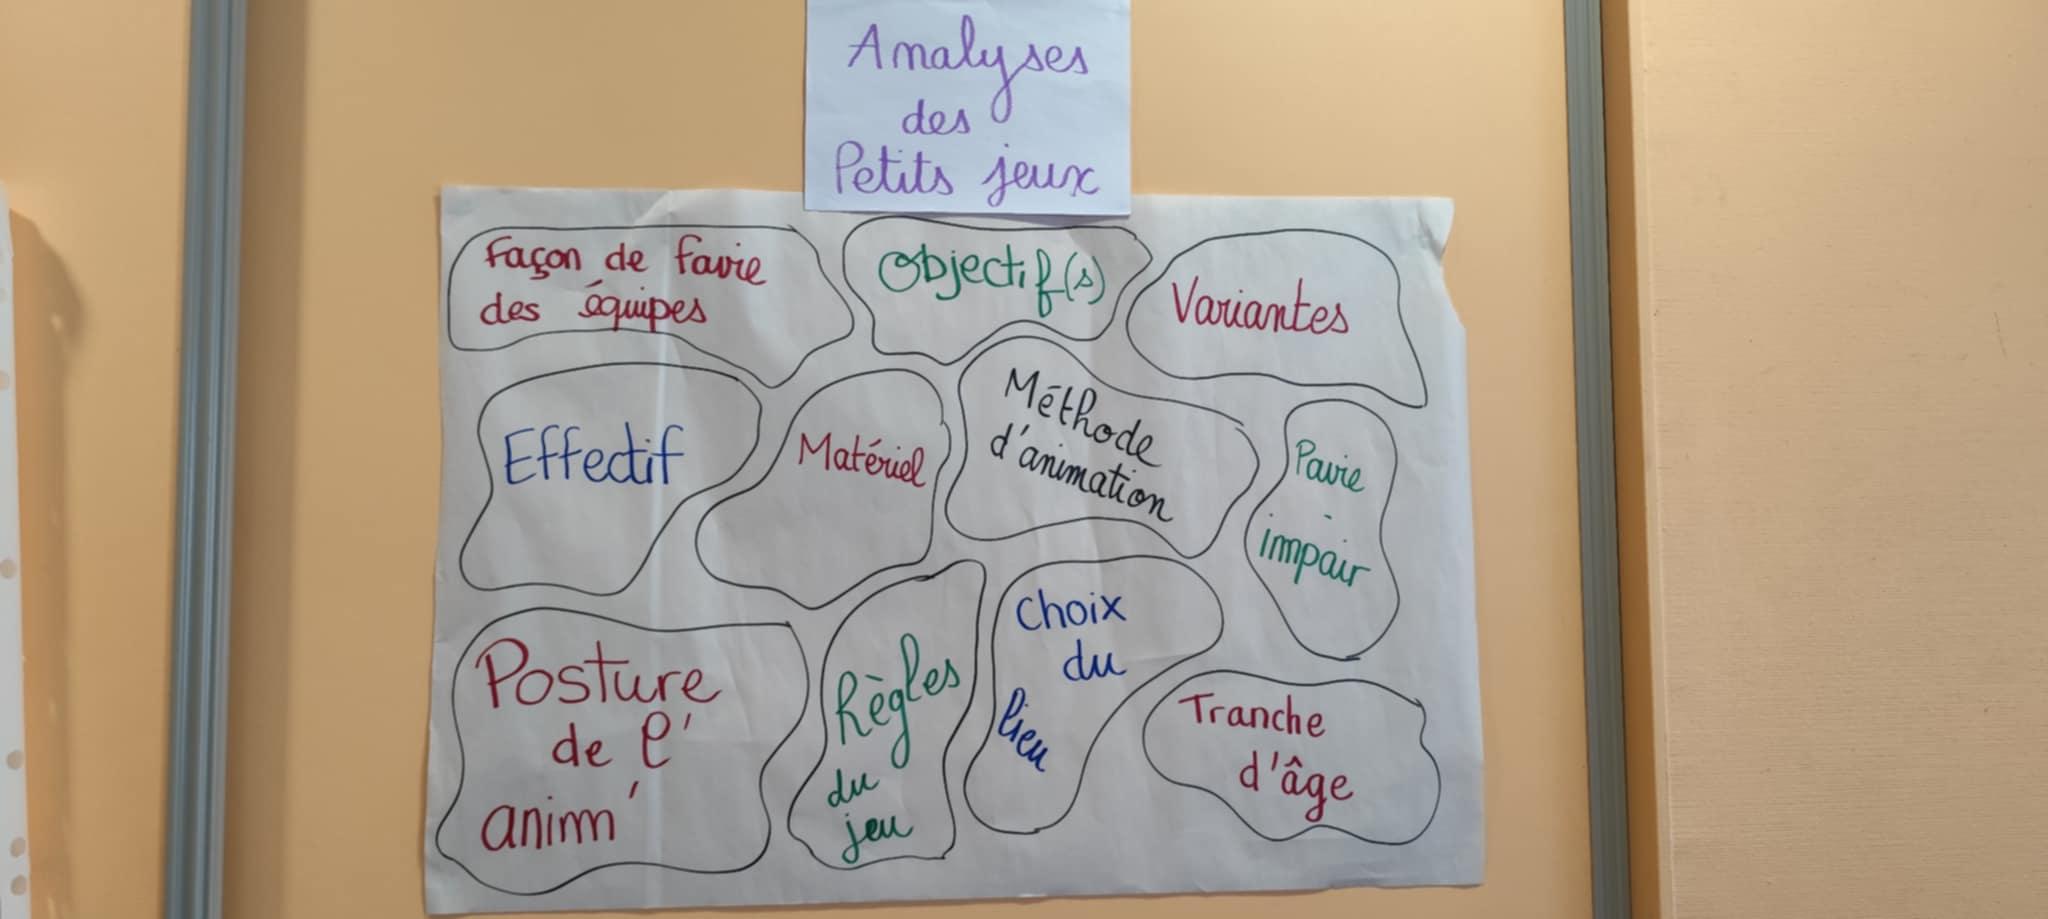 Analyses
des
Petits jeux
Façon de faire
des équipes
Objectif(s)
Variantes
Effectif
Matériel
Méthode
d'animation
Paire
-
impair
Posture
de l'
anim'
Règles
du
jeu
Choix
du
lieu
Tranche
d'âge